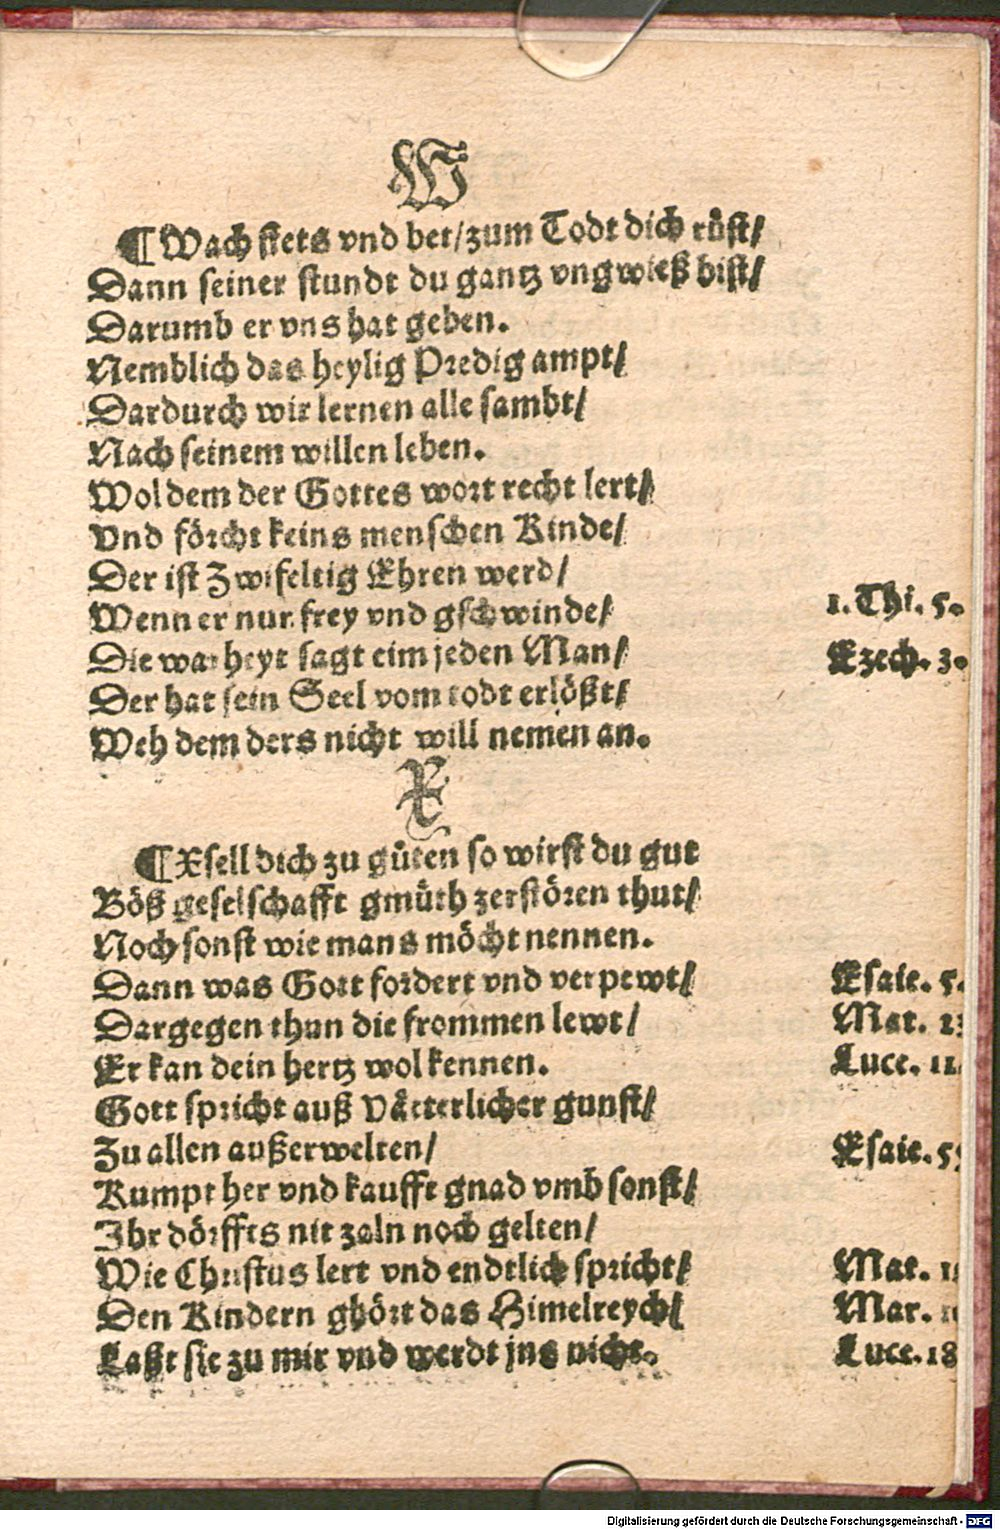 W
¶ Wach stets vnd bet / zum Todt dich rüst /
Dann seiner stundt du gantz vngwieß bist /
Darumb er vns hat geben.
Nemblich das heylig Predig ampt /
Dardurch wir lernen alle sambt /
Nach seinem willen leben.
Wol dem der Gottes wort recht lert /
Vnd förcht keins menschen Kinde /
Der ist Zwifeltig Ehren werd /
Wenn er nur frey vnd gschwinde / 1. Thi. 5.
Die warheyt sagt eim jeden Man / Ezech. 3.
Der hat sein Seel vom todt erlößt /
Weh dem ders nicht will nemen an.
X
¶ Xsell dich zu güten so wirst du gut
Böß geselschafft gmüth zerstören thut /
Noch sonst wie mans möcht nennen.
Dann was Gott fordert vnd verpewt / Esaie. 5.
Dargegen thun die frommen lewt / Mat.
Er kan dein hertz wol kennen. Luce. 11.
Gott spricht auß Vätterlicher gunst /
Zu allen außerwelten / Esaie.
Kumpt her vnd kaufft gnad vmb sonst /
Ihr dörffts nit zaln noch gelten /
Wie Christus lert vnd endtlich spricht / Mat.
Den Kindern ghört das Himelreych / Mar.
Laßt sie zu mir vnd werdt jns nicht. Luce. 18
Digitalisierung gefördert durch die Deutsche Forschungsgemeinschaft - DFG